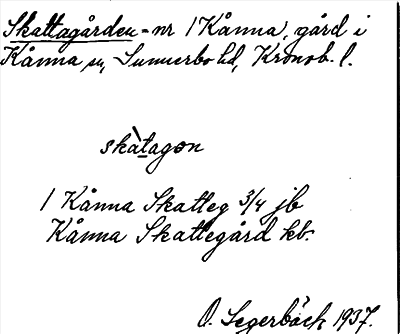 Skattagården - nr 1 Kånna, gård i
Kånna sn, Sunnerbo hd, Kronob. l.
skàtagɷn
1 Kånna Skatteg 3/4 jb
Kånna Skattegård kb.
O. Segerbäck 1937.